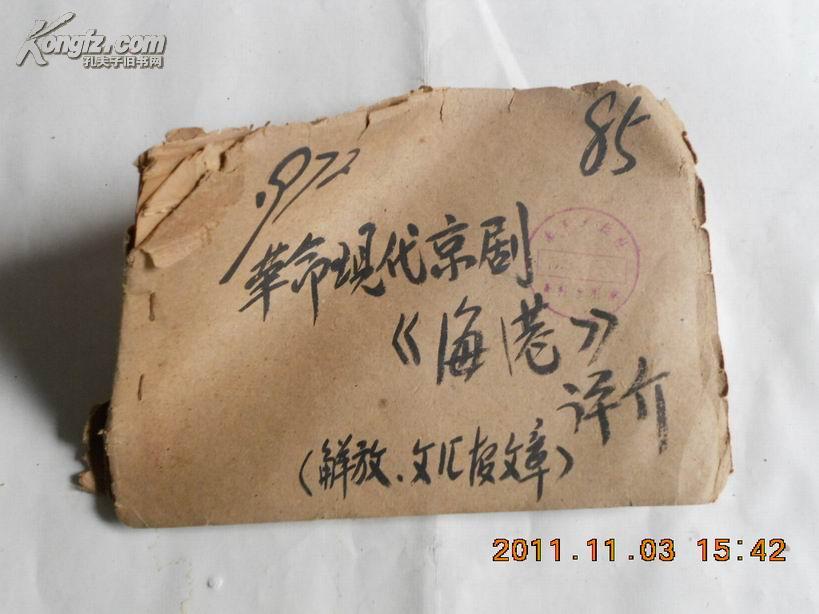 Kongfz.com
孔夫子旧书网
85
1972
革命现代京剧
《海港》
评介
(解放、文汇报文章)
2011.11.03 15:42